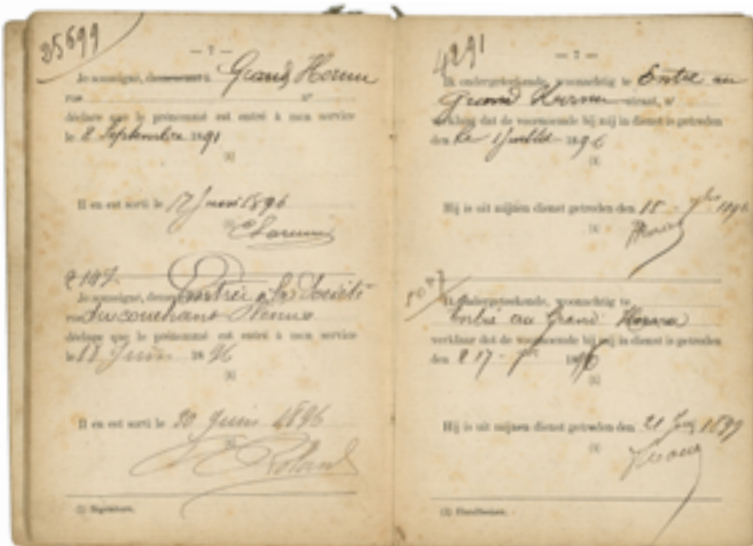 25699
— 7 —
Je soussigné, demeurant à Grand Hornu
rue n°
déclare que le prénommé est entré à mon service
le 8 Septembre 1891
[1]
Il en est sorti le 17 Juin 1896
Je soussigné, Entré à la Société
rue du couchant Flénu
déclare que le prénommé est entré à mon service
le 18 Juin 1896
[1]
Il en est sorti le 30 Juin 1896
Roland
(1) Signature.
4291
— 7 —
Ik ondergeteekende, woonachtig te Entré au
Grand Hornu straat, n°
verklaar dat de voornoemde bij mij in dienst is getreden
den le 1 Juillet 1896
[1]
Hij is uit mijnen dienst getreden den 15 1896
[1]
Ik ondergeteekende, woonachtig te
Entré au Grand Hornu
verklaar dat de voornoemde bij mij in dienst is getreden
den 17 1896
[1]
Hij is uit mijnen dienst getreden den 21 1897
[1]
(1) Handteeken.